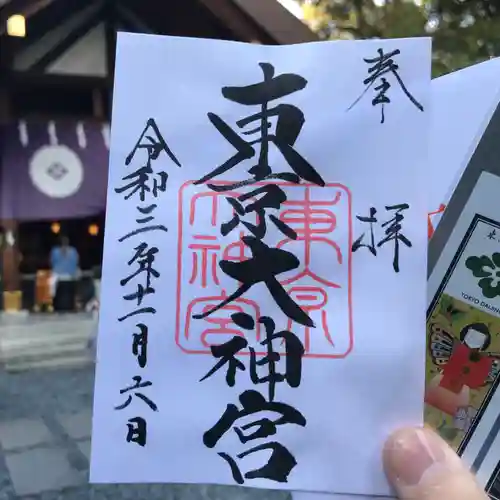 奉拝
東京大神宮
東京
大神宮
令和三年十一月六日
TOKYO